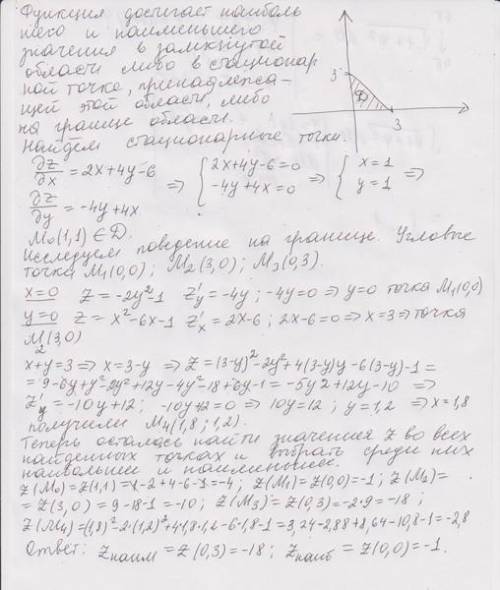 Функция достигает наиболь
шего и наименьшего
значения в замкнутой
области либо в стационар
ной точке, принадлежа-
щей этой области, либо
на границе области.
Найдем стационарные точки.
3 D 3
∂z/∂x = 2x+4y-6 ⇒ { 2x+4y-6=0 ⇒ { x=1 ⇒
∂z/∂y = -4y+4x { -4y+4x=0 { y=1
M₀(1,1) ∈ D.
Исследуем поведение на границе. Угловые
точки M₁(0,0); M₂(3,0); M₃(0,3).
x=0 z=-2y²-1 z'y=-4y; -4y=0 ⇒ y=0 точка M₁(0,0)
y=0 z=x²-6x-1 z'x=2x-6; 2x-6=0 ⇒ x=3 ⇒ точка
M₂(3,0)
x+y=3 ⇒ x=3-y ⇒ z=(3-y)²-2y²+4(3-y)y-6(3-y)-1=
=9-6y+y²-2y²+12y-4y²-18+6y-1=-5y2+12y-10 ⇒
z'y=-10y+12; -10y+12=0 ⇒ 10y=12; y=1,2 ⇒ x=1,8
получили M₄(1,8; 1,2).
Теперь осталось найти значения z во всех
найденных точках и выбрать среди них
наибольшее и наименьшее.
z(M₀)=z(1,1)=1-2+4-6-1=-4; z(M₁)=z(0,0)=-1; z(M₂)=
=z(3,0)=9-18-1=-10; z(M₃)=z(0,3)=-2·9=-18;
z(M₄)=(1,8)²-2(1,2)²+4·1,8·1,2-6·1,8-1=3,24-2,88+8,64-10,8-1=-2,8
Ответ: zнаим=z(0,3)=-18; zнаиб=z(0,0)=-1.